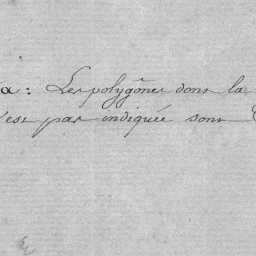 a : Les polygônes dont la
n'est pas indiquée sont